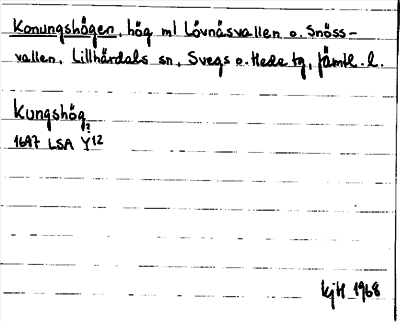 Konungshögen, hög ml Lövnäsvallen o. Snöss-
vallen, Lillhärdals sn, Svegs o. Hede tg, Jämtl. l.
Kungshög
?
1697 LSA Y12
KjH 1968